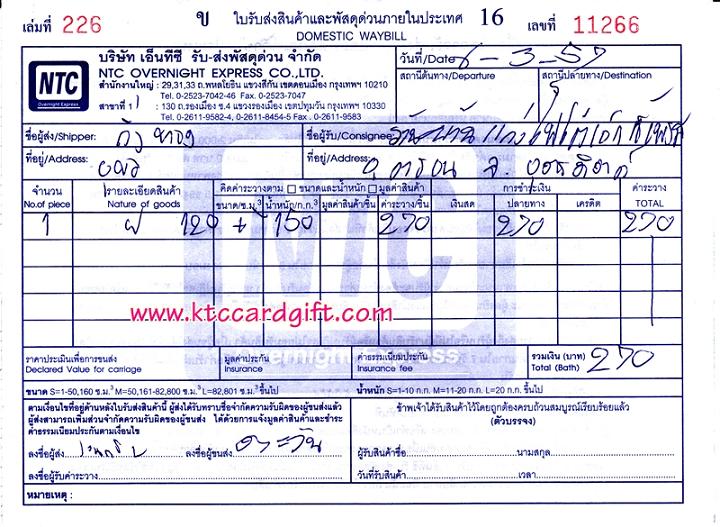 เล่มที่ 226 ข ใบรับส่งสินค้าและพัสดุด่วนภายในประเทศ 16 เลขที่ 11266
DOMESTIC WAYBILL
NTC
Overnight Express
บริษัท เอ็นทีซี รับ-ส่งพัสดุด่วน จำกัด
NTC OVERNIGHT EXPRESS CO.,LTD.
สำนักงานใหญ่ : 29,31,33 ถ.พหลโยธิน แขวงสีกัน เขตดอนเมือง กรุงเทพฯ 10210
Tel. 0-2523-7042-46 Fax. 0-2523-7047
สาขาที่ 1 : 130 ถ.รองเมือง ซ.4 แขวงรองเมือง เขตปทุมวัน กรุงเทพฯ 10330
Tel. 0-2611-9582-4, 0-2611-8454-5 Fax. 0-2611-9583
วันที่/Date 6-3-57
สถานีต้นทาง/Departure สถานีปลายทาง/Destination
ชื่อผู้ส่ง/Shipper: ชื่อผู้รับ/Consignee:
ที่อยู่/Address: ที่อยู่/Address: อ.ตรอน จ.อุตรดิตถ์
จำนวน รายละเอียดสินค้า คิดค่าระวางตาม ขนาดและน้ำหนัก มูลค่าสินค้า การชำระเงิน ค่าระวาง
No.of piece Nature of goods ขนาด/ซ.ม.³ น้ำหนัก/ก.ก.³ มูลค่าสินค้า/ชิ้น ค่าระวาง/ชิ้น เงินสด ปลายทาง เครดิต TOTAL
1 ฝ 120 + 150 270 270 270
www.ktccardgift.com
NTC
Overnight Express
ราคาประเมินเพื่อการขนส่ง มูลค่าประกัน ค่าธรรมเนียมประกัน รวมเงิน (บาท) 270
Declared Value for carriage Insurance Insurance fee Total (Bath)
ขนาด S=1-50,160 ซ.ม.³ M=50,161-82,800 ซ.ม.³ L=82,801 ซ.ม.³ ขึ้นไป น้ำหนัก S=1-10 ก.ก. M=11-20 ก.ก. L=20 ก.ก. ขึ้นไป
ตามเงื่อนไขที่อยู่ด้านหลังใบรับส่งสินค้านี้ ผู้ส่งได้รับทราบข้อจำกัดความรับผิดของผู้ขนส่งแล้ว
ผู้ส่งสามารถเพิ่มส่วนจำกัดความรับผิดของผู้ขนส่ง ได้ด้วยการแจ้งมูลค่าสินค้าและชำระ
ค่าธรรมเนียมประกันตามเงื่อนไข
ข้าพเจ้าได้รับสินค้าไว้โดยถูกต้องครบถ้วนสมบูรณ์เรียบร้อยแล้ว
(ตัวบรรจง)
ลงชื่อผู้ส่ง ลงชื่อผู้ขนส่ง ตะวัน ผู้รับสินค้าชื่อ นามสกุล
ลงชื่อผู้รับค่าระวาง วันที่รับสินค้า เวลา
หมายเหตุ :